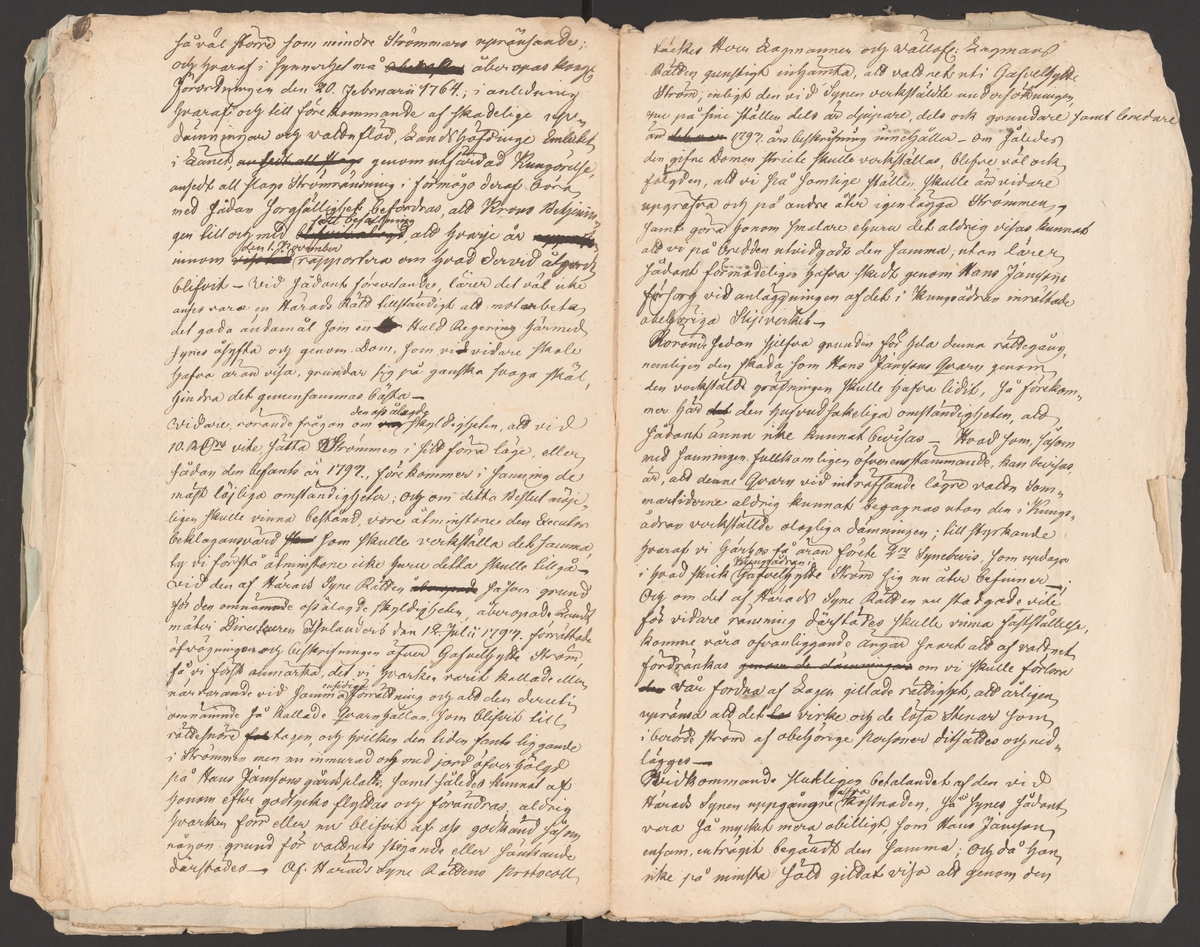 så väl större som mindre Strömmars upränsande;
och hvaraf i synnerhet må åberopas Kongl.
Förordningen den 20. Februarii 1764; i anledning
hvaraf och till förekommande af skadelige upp-
dämningar och vattnflöd, Landshöfdinge Embetet
i Länet, genom utfärdad Kungörelse,
ansedt all slags Strömränsning i förmågo deraf böra
med sådan sorgfällighet befordras, att Krono Betjenin-
gen till och med fått befallning att hvarje år
innom den 1. November rapportera om hvad dervid åtgärdt
blifvit – Vid sådant förevetandes, lärer det väl icke
anses vara en Härads Rätt tillständigt att motarbeta
det goda ändamål som en Huld Regering härmed
synes åsyfta och genom Dom, som vi vidare skole
hafva äran visa, grundar sig på ganska svaga skäl,
hindra det gemensammas bästa –
Vidare, rörande frågan om den oss ålagde skyldigheten, att vid
10. R:dr vite sätta Strömmen i sitt förra läge, eller
sådan den befants år 1797, förekommer i sanning de
mäst löjliga omständigheter; och om detta Beslut möje-
ligen skulle vinna bestånd, vore åtminstone den Executor
beklagansvärd som skulle verkställa det samma,
ty vi förstå åtminstone icke huru detta skulle tillgå –
Vid den af Härads Syne Rätten såsom grund
för den omnämnde oss ålagde skyldigheten, åberopade Landt-
mäteri Directeuren Thelanders den 12 Julii 1797. förrättade
afvägningen och beskrifningen öfver Gafvelhytte Ström,
få vi först anmärka, det vi hvarken varit kallade eller
närvarande vid samma ensidiga förrättning och att den deruti
omnämnde så kallade Qvarnhällan, som blifvit till
rättesnöre tagen, och hvilken den tiden fants liggande
i Strömmen men nu inmurad och med jord öfverhöljd
på Hans Jansons gårdsplatts samt således kunnat af
honom efter godtycko flyttas och förändras, aldrig
hvarken förr eller nu blifvit af oss godkänd såsom
någon grund för vattnets stigande eller sänkande
därstädes – Af Härads Syne Rättens Protocoll
täcktes Herr Lagmannen och Vällofl: Lagmans
Rätten gunstigt inhämta, att vattnet uti Gafvelhytte
Ström, enligt den vid Synen verkställte undersökningen,
nu på sine ställen dels är djupare, dels ock grundare samt bredare
än 1797. års beskrifning innehåller – Om således
den gifne Domen stricte skulle verkställas, blefve väl ock
följden, att vi på somlige ställen skulle än vidare
upgrafva och på andre åter igenlägga Strömmen,
samt göra honom smalare ehuru det aldrig visas kunnat
att vi på bredden utvidgadt den samma, utan lärer
sådant förmodeligen hafva skedt genom Hans Jansons
försorg vid anläggningen af det i Kungsådran inrättade
obehöriga Stiverket –
Rörande sedan sjelfva grunden för hela denna rättegång,
nemligen den skada som Hans Jansons Qvarn genom
den verkstälde gräfningen skulle hafva lidit, så förekom-
mer här den hufvudsakeliga omständigheten, att
sådant ännu icke kunnat bevisas – Hvad som, såsom
med sanningen fullkomligen öfverensstämmande, kan bevisas,
är, att denne Qvarn vid inträffande lägre vattn Som-
martiderne aldrig kunnat begagnas utan den i Kungs-
ådran verkställde olagliga dämningen; till styrkande
hvaraf vi härhos få äran förete Syne bevis, som updagar
i hvad skick Kungsådran i Gafvelhytte Ström sig nu åter befinner –
Och om det af Härads Syne Rätten nu stadgade vite
för vidare rensning därstädes skulle vinna fastställelse,
komme våra ofvanliggande ängar snart att af vattnet
fördränkas om vi skulle förlora
vår fordna af Lagen gillade rättighet, att årligen
upränsa allt det virke och de lösa Stenar som
i berörde ström af obehörige personer ditsättes och ned-
lägges –
Vidkommande slutligen betalandet af den vid
Härads Synen uppgångne Kostnaden, så synes sådant
vara så mycket mera obilligt som Hans Janson
ensam, enträgit begärdt den samma; Och då han
icke på minsta sätt gittat visa att genom den